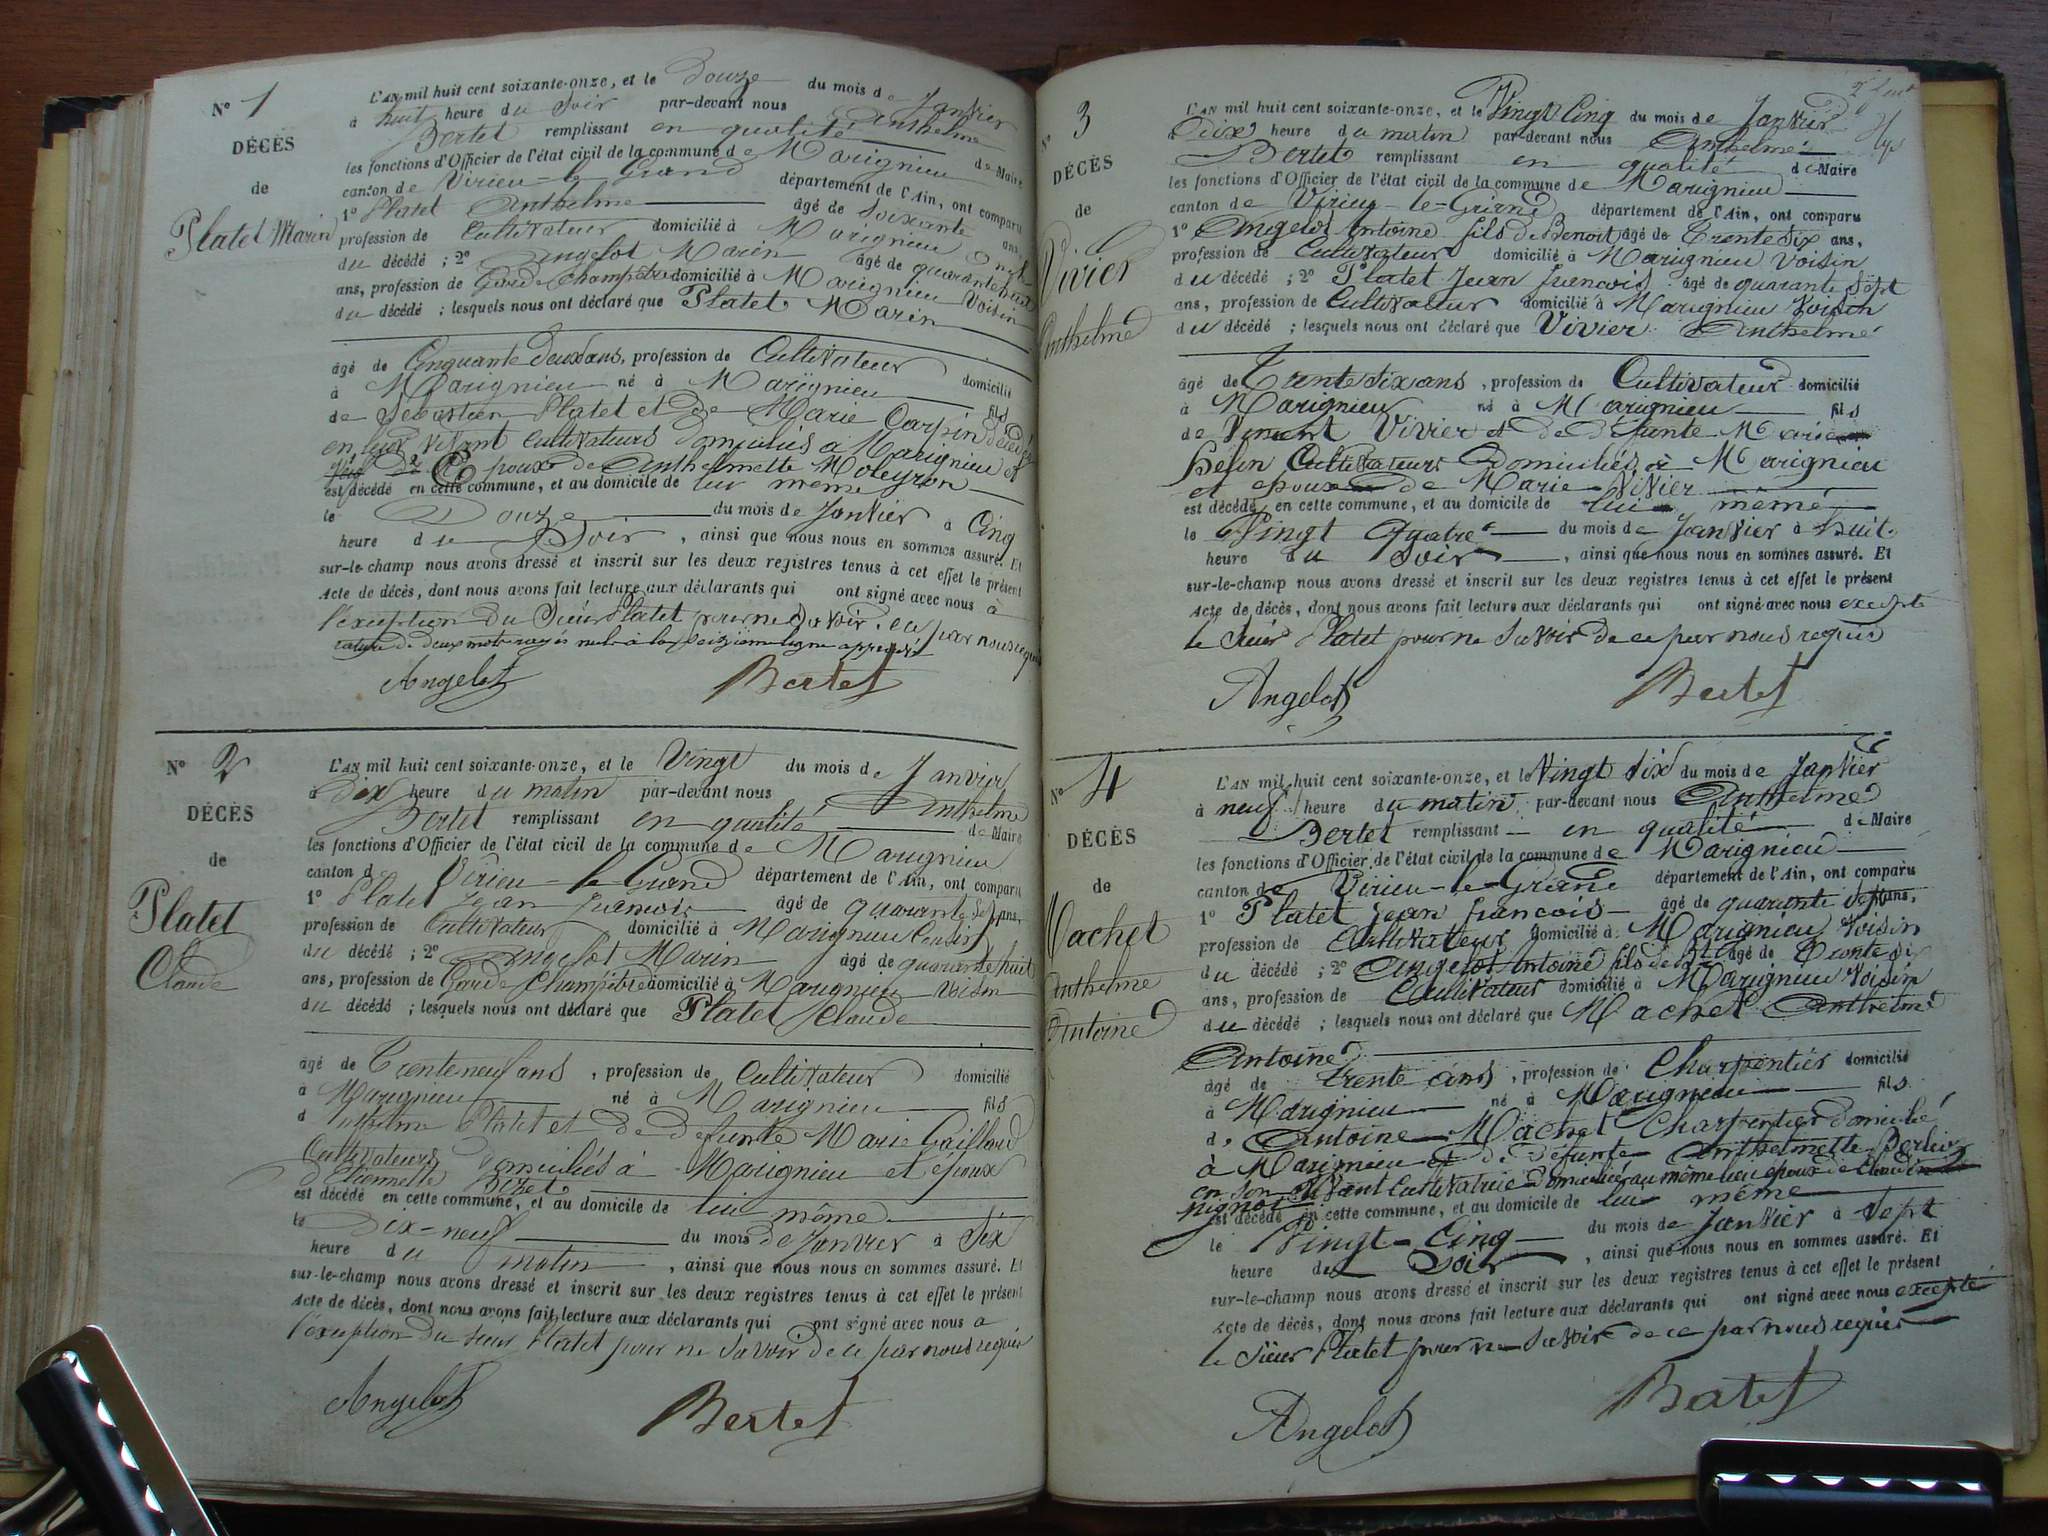 N° 1
DÉCÈS
de
Platet Marin
L'AN mil huit cent soixante-onze, et le Douze du mois de Janvier
à huit heure du Soir par-devant nous Anthelme
Bertet remplissant en qualité de Maire
les fonctions d'Officier de l'état civil de la commune de Marignieu
canton de Virieu-le-Grand département de l'Ain, ont comparu
1° Platet Anthelme âgé de Soixante ans,
profession de Cultivateur domicilié à Marignieu
du décédé ; 2° Angelot Marin âgé de quarante huit
ans, profession de Garde Champêtre domicilié à Marignieu Voisin
du décédé ; lesquels nous ont déclaré que Platet Marin
âgé de Cinquante deux ans, profession de Cultivateur domicilié
à Marignieu né à Marignieu fils
de Sébastien Platet et de Marie Carpin décédés
en leur vivant Cultivateurs Domiciliés à Marignieu et
Epoux de Anthelmette Moleyron
est décédé en cette commune, et au domicile de lui même
le Douze du mois de Janvier à Cinq
heure du Soir, ainsi que nous nous en sommes assuré. Et
sur-le-champ nous avons dressé et inscrit sur les deux registres tenus à cet effet le présent
Acte de décès, dont nous avons fait lecture aux déclarants qui ont signé avec nous à
l'exception du Sieur Platet pour ne Savoir de ce par nous requis
rature de deux mots rayés nuls à la seizième ligne approuvée
Angelot Bertet
N° 2
DÉCÈS
de
Platet
Claude
L'AN mil huit cent soixante-onze, et le Vingt du mois de Janvier
à Dix heure du matin par-devant nous Anthelme
Bertet remplissant en qualité de Maire
les fonctions d'Officier de l'état civil de la commune de Marignieu
canton de Virieu-le-Grand département de l'Ain, ont comparu
1° Platet Jean francois âgé de quarante Sept ans,
profession de Cultivateur domicilié à Marignieu Cousin
du décédé ; 2° Angelot Marin âgé de quarante huit
ans, profession de Garde Champêtre domicilié à Marignieu Voisin
du décédé ; lesquels nous ont déclaré que Platet Claude
âgé de Trente neuf ans, profession de Cultivateur domicilié
à Marignieu né à Marignieu fils
d'Anthelme Platet et de défunte Marie Gaillard
Cultivateurs domiciliés à Marignieu et époux
d'Etiennette
est décédé en cette commune, et au domicile de lui même
le Dix-neuf du mois de Janvier à Six
heure du matin, ainsi que nous nous en sommes assuré. Et
sur-le-champ nous avons dressé et inscrit sur les deux registres tenus à cet effet le présent
Acte de décès, dont nous avons fait lecture aux déclarants qui ont signé avec nous a
l'exception du sieur Platet pour ne Savoir de ce par nous requis
Angelot Bertet
N° 3
DÉCÈS
de
Vivier
Anthelme
L'AN mil huit cent soixante-onze, et le Vingt Cinq du mois de Janvier
Dix heure du matin par-devant nous Anthelme
Bertet remplissant en qualité de Maire
les fonctions d'Officier de l'état civil de la commune de Marignieu
canton de Virieu-le-Grand département de l'Ain, ont comparu
1° Angelot Antoine fils de Benoit âgé de Trente Six ans,
profession de Cultivateur domicilié à Marignieu Voisin
du décédé ; 2° Platet Jean francois âgé de quarante Sept
ans, profession de Cultivateur domicilié à Marignieu Voisin
du décédé ; lesquels nous ont déclaré que Vivier Anthelme
âgé de Trente Six ans, profession de Cultivateur domicilié
à Marignieu né à Marignieu fils
de Vincent Vivier et de défunte Marie
Cultivateurs Domiciliés à Marignieu
et époux de Marie Vivier
est décédé en cette commune, et au domicile de lui même
le Vingt Quatre du mois de Janvier à huit
heure du Soir, ainsi que nous nous en sommes assuré. Et
sur-le-champ nous avons dressé et inscrit sur les deux registres tenus à cet effet le présent
Acte de décès, dont nous avons fait lecture aux déclarants qui ont signé avec nous excepté
le Sieur Platet pour ne Savoir de ce par nous requis
Angelot Bertet
N° 4
DÉCÈS
de
Machet
Anthelme
Antoine
L'AN mil huit cent soixante-onze, et le Vingt Six du mois de Janvier
à neuf heure du matin par-devant nous Anthelme
Bertet remplissant en qualité de Maire
les fonctions d'Officier de l'état civil de la commune de Marignieu
canton de Virieu-le-Grand département de l'Ain, ont comparu
1° Platet Jean francois âgé de quarante Sept ans,
profession de Cultivateur domicilié à Marignieu Voisin
du décédé ; 2° Angelot Antoine fils de âgé de Trente Six
ans, profession de Cultivateur domicilié à Marignieu Voisin
du décédé ; lesquels nous ont déclaré que Machet Anthelme
Antoine
âgé de trente ans, profession de Charpentier domicilié
à Marignieu né à Marignieu fils
d'Antoine Machet Charpentier domicilié
à Marignieu et de défunte Anthelmette
en son vivant Cultivatrice domiciliée au même lieu époux de Claudine
est décédé en cette commune, et au domicile de lui même
le Vingt-Cinq du mois de Janvier à Sept
heure du Soir, ainsi que nous nous en sommes assuré. Et
sur-le-champ nous avons dressé et inscrit sur les deux registres tenus à cet effet le présent
Acte de décès, dont nous avons fait lecture aux déclarants qui ont signé avec nous excepté
le Sieur Platet pour ne Savoir de ce par nous requis
Angelot Bertet